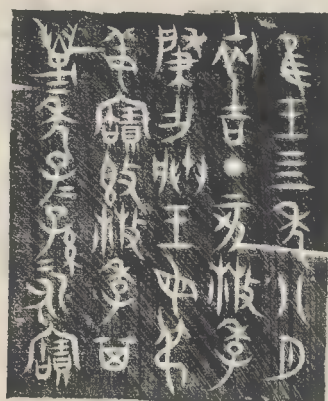 隹王三年八月
初吉丁亥散季
肇乍朕王母弔
姜寶𣪘散季其
萬年子=孫=永寶